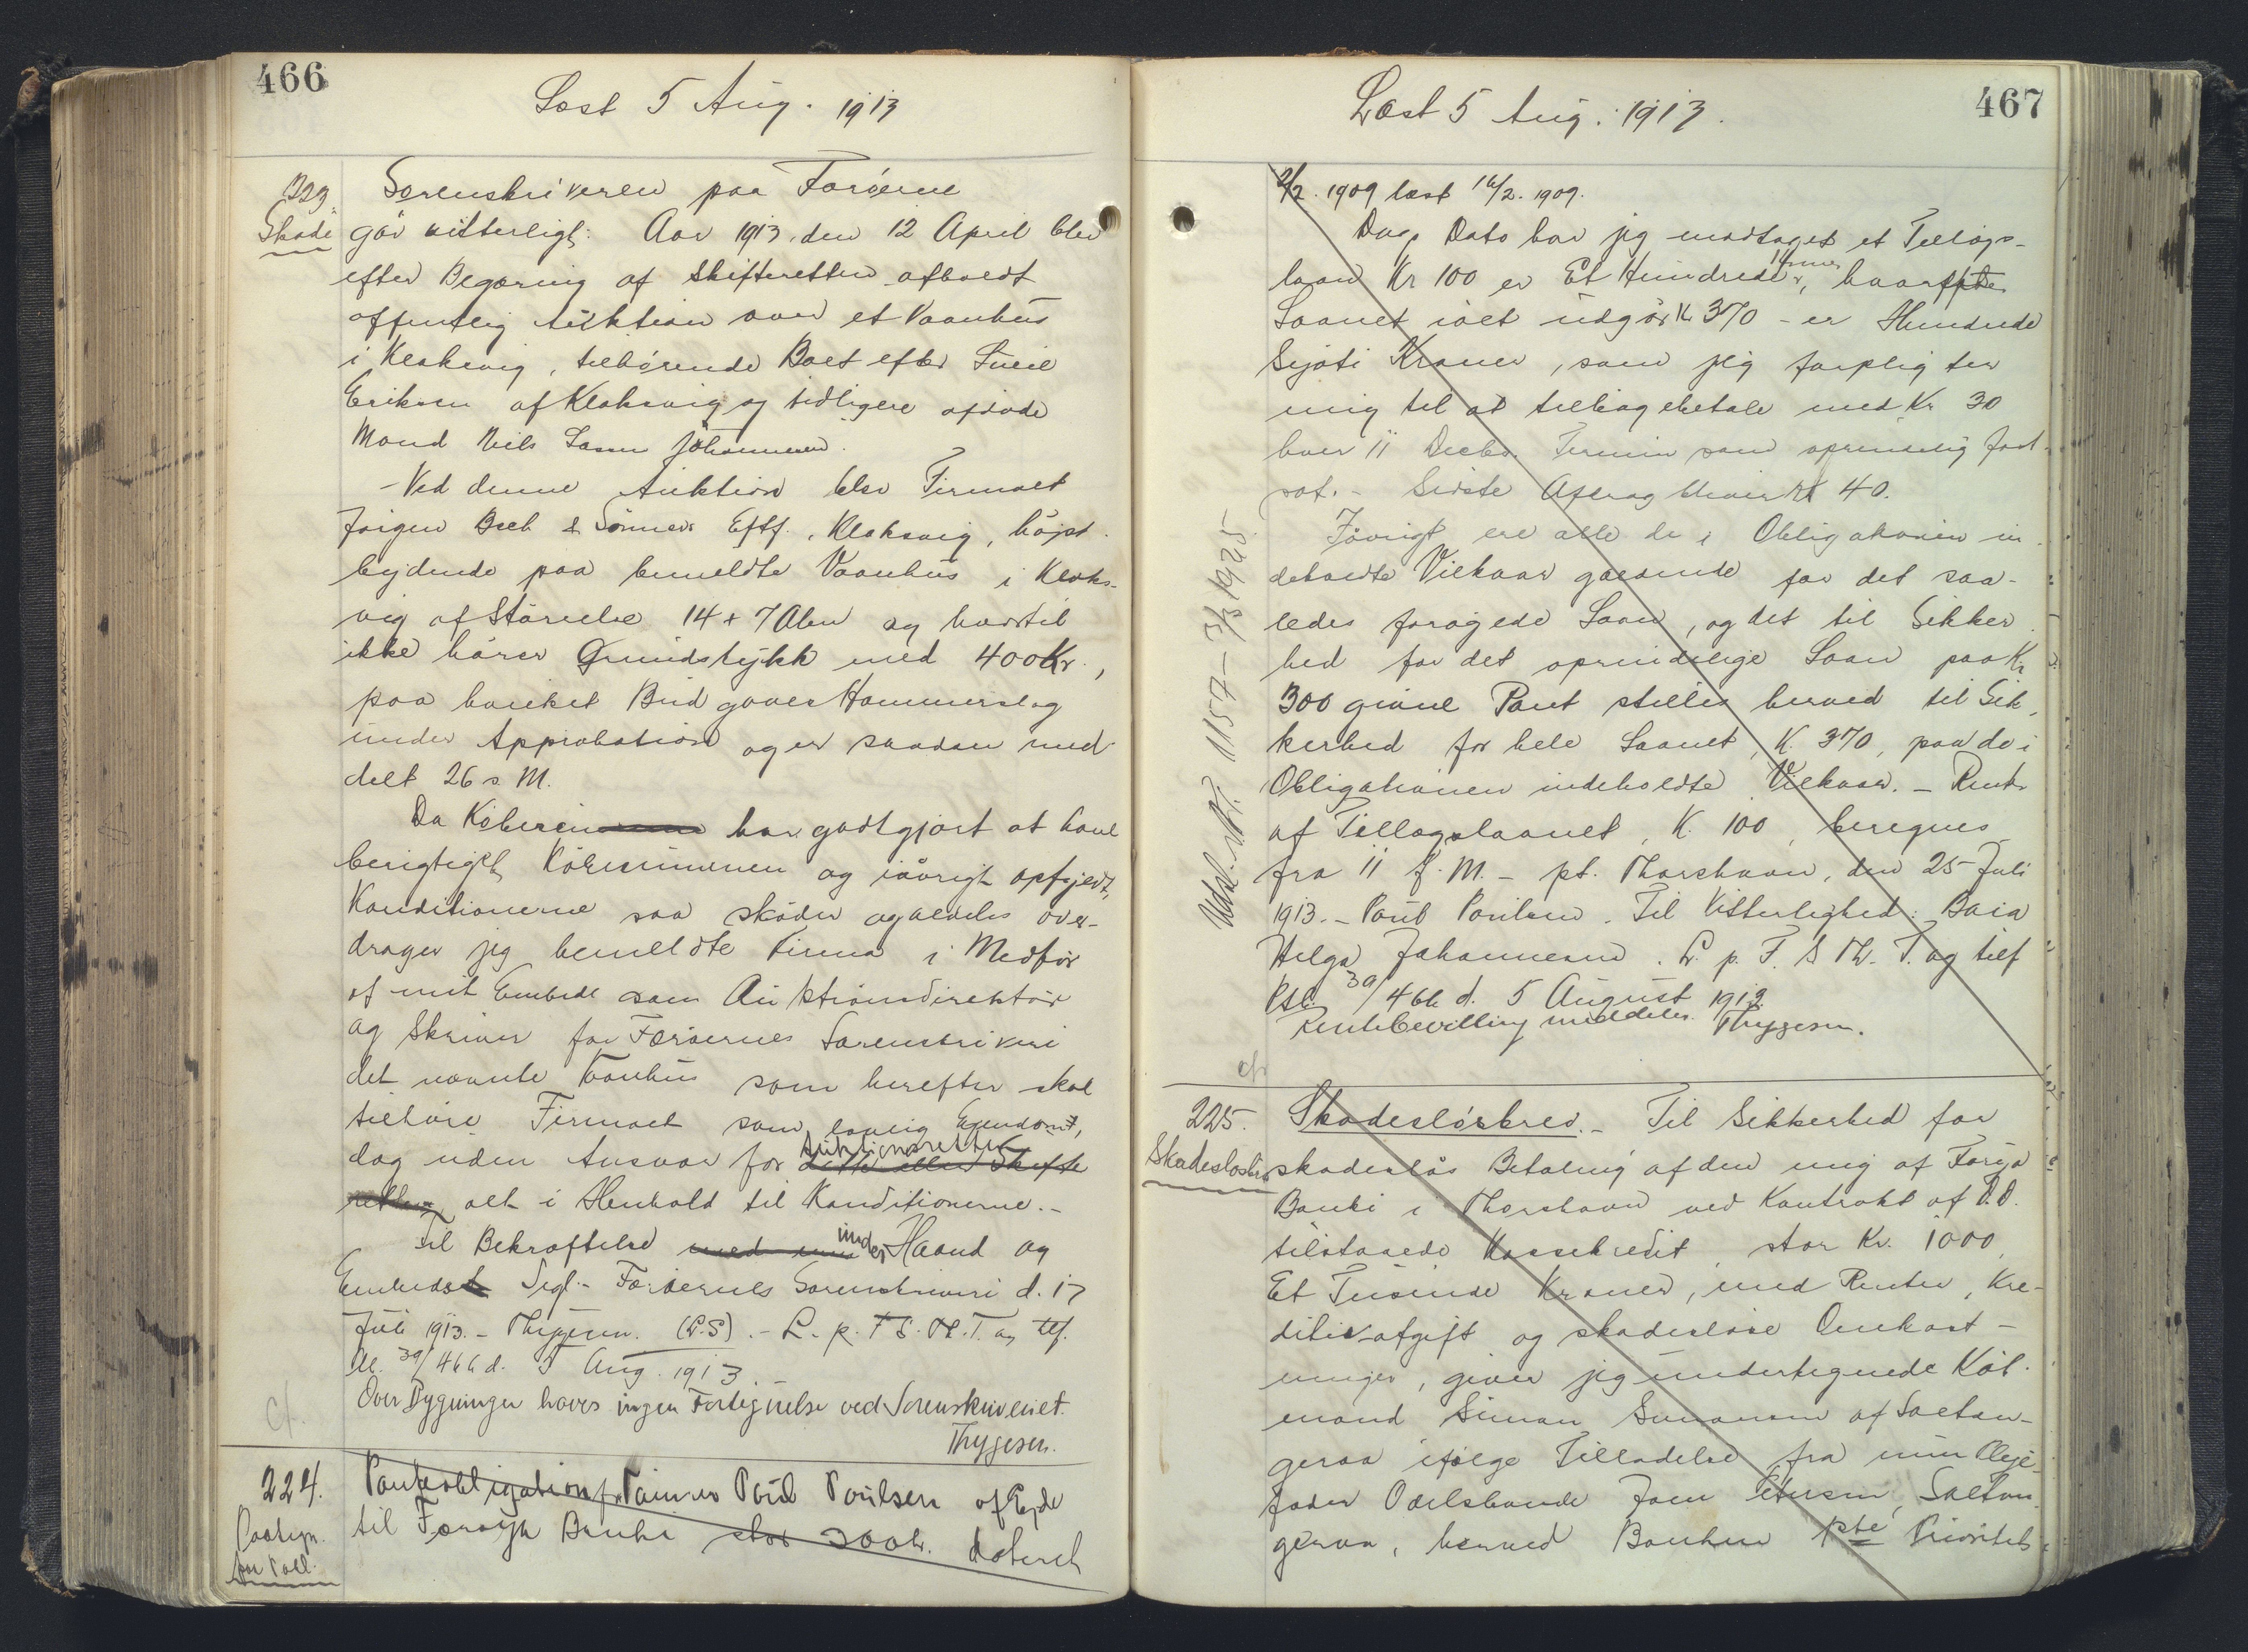 466
Læst 5 Aug. 1913
223.
Skøde
Sorenskriveren paa Færøerne
gör vitterligt: Aar 1913, den 12 April blev
efter Begæring af Skifteretten afholdt
offentlig Auktion over et Vaanhus
i Klaksvig, tilhørende Boet efter
Eriksen af Klaksvig og tidligere afdøde
Mand Niels Johannesen.
- Ved denne Auktion blev Firmaet
Jörgen Bech & Sönners Eftf., Klaksvig, höjst-
bydende paa bemeldte Vaanhus i Klaks-
vig af Störrelse 14 + 7 Alen og hvortil
ikke hörer Grundstykke med 400 Kr.,
paa hvilket Bud gaves Hammerslag
under Approbation og er saadan med-
delt 26 s. M.
Da Köberen har godtgjort at have
berigtiget Köbesummen og iövrigt opfyldt
Konditionerne saa skøder og aldeles over-
drager jeg bemeldte Firma i Medför
af mit Embede som Auktionsdirektör
og Skriver for Færöernes Sorenskriveri
det nævnte Vaanhus som herefter skal
tilhöre Firmaet som lovlig Ejendom,
Auktionsretten
dog uden Ansvar for dette eller Skifte
retten, alt i Henhold til Konditionerne. -
under
Til Bekræftelse med min Haand og
Embeds Segl. - Færöernes Sorenskriveri d. 17
Juli 1913. - Thygesen. (L.S). - L. p. F. S. Th. T. og tlf.
39/466 d. 5 Aug. 1913
Over Bygninger haves ingen Fortegnelse ved Sorenskriveriet.
Thygesen.
cf.
224.
Paategn.
paa Obl.
Panteobligation fra Poul Poulsen af Ejde
til Færøya Banki stor 300 Kr. dateret
467
Læst 5 Aug. 1913.
2/2. 1909 læst 16/2. 1909.
Dags Dato har jeg modtaget et Tillægs-
Kroner
laan Kr 100 er Et Hundrede, hvorefter
Laanet ialt udgör Kr 370 - er Hundrede
Syvti Kroner, som jeg forpligter
mig til at tilbagebetale med Kr 30
hver 11 Decbr. Termin som oprindelig fast-
sat. - Sidste Afdrag bliver Kr 40.
Iövrigt ere alle de i Obligationen in-
deholdte Vilkaar gældende for det saa-
ledes forögede Laan, og det til Sikker-
hed for det oprindelige Laan paa Kr
300 givne Pant stilles herved til Sik-
kerhed for hele Laanet, K. 370, paa de i
Obligationen indeholdte Vilkaar. - Rente
af Tillægslaanet, K. 100, beregnes
fra 11 f. M. - pt. Thorshavn, den 25 Juli
1913. - Poul Poulsen. Til Vitterlighed:
Helga Johannesen. L. p. F. S. Th. T. og tilf
39/466 d. 5 August 1913
Rentebevilling meddeles. Thygesen.
Udsl. Nr. 1157 - 3/3 1925.
cf.
225.
Skadeslösbr.
Skadeslösbrev. - Til Sikkerhed for
skadeslös Betaling af den mig af Föroya
Banki i Thorshavn ved Kontrakt af D.D.
tilstaaede Kassekredit stor Kr. 1000,
Et Tusinde Kroner, med Renter, Kre-
ditivafgift og skadeslöse Omkost-
ninger, giver jeg undertegnede Köb-
mand Simun Simonsen af Saltan-
geraa ifölge Tilladelse fra min Pleje-
fader Odelsbonde Petersen, Saltan-
geraa, herved Banken 1ste Prioritets